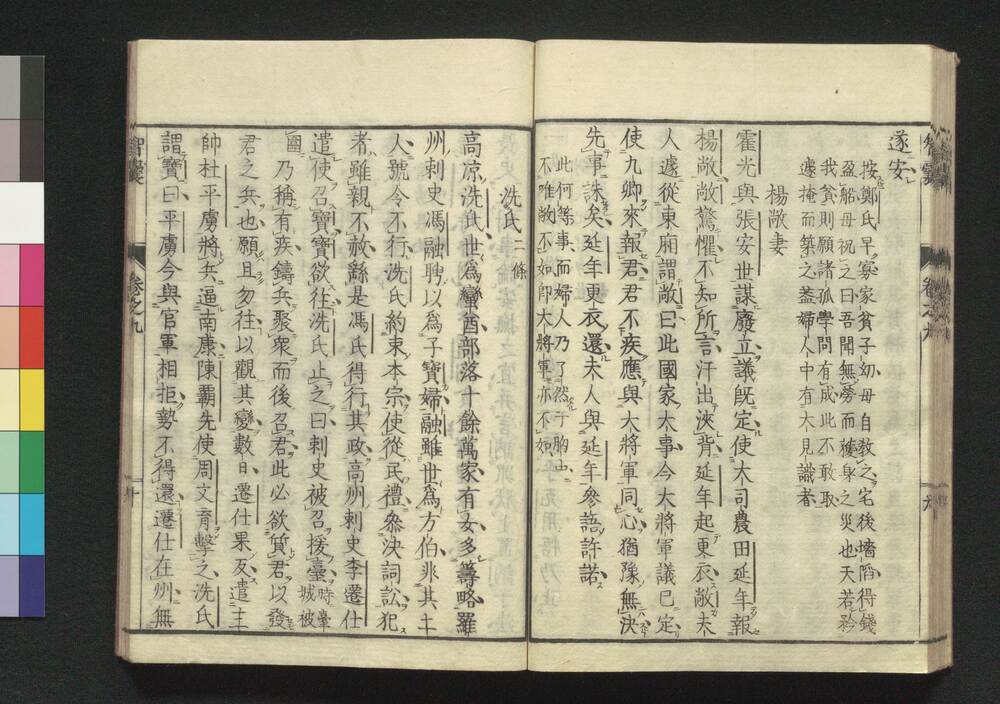 遂安
按鄭氏早寡家貧子幼母自教之宅後墻陷得錢
盈船母祝之曰吾聞無勞而獲身之災也天若矜
我貧則願諸孤學問有成此不敢取
遽掩而築之蓋婦人中有大見識者
楊敞妻
霍光與張安世謀廢立議既定使大司農田延年報
楊敞敞驚懼不知所言汗出浹背延年起更衣敞夫
人遽從東廂謂敞曰此國家大事今大將軍議已定
使九卿來報君君不疾應與大將軍同心猶豫無決
先事誅矣延年更衣還夫人與延年參語許諾
此何等事而婦人乃了然于胸中
不唯敞不如即大將軍亦不如
智囊
卷之九
九
洗氏二條
高凉洗氏世為蠻酋部落十餘萬家有女多籌略羅
州刺史馮融聘以為子寶婦融雖世為方伯非其土
人號令不行洗氏約束本宗使從民禮參決詞訟犯
者雖親不赦繇是馮氏得行其政高州刺史李遷仕
遣使召寶寶欲往洗氏止之曰刺史被召援臺時臺城被
圍乃稱有疾鑄兵聚衆而後召君此必欲質君以發
君之兵也願且勿往以觀其變數日遷仕果反遣主
帥杜平虜將兵逼南康陳霸先使周文育擊之洗氏
謂寶曰平虜今與官軍相拒勢不得還遷仕在州無
智囊
卷之九
十